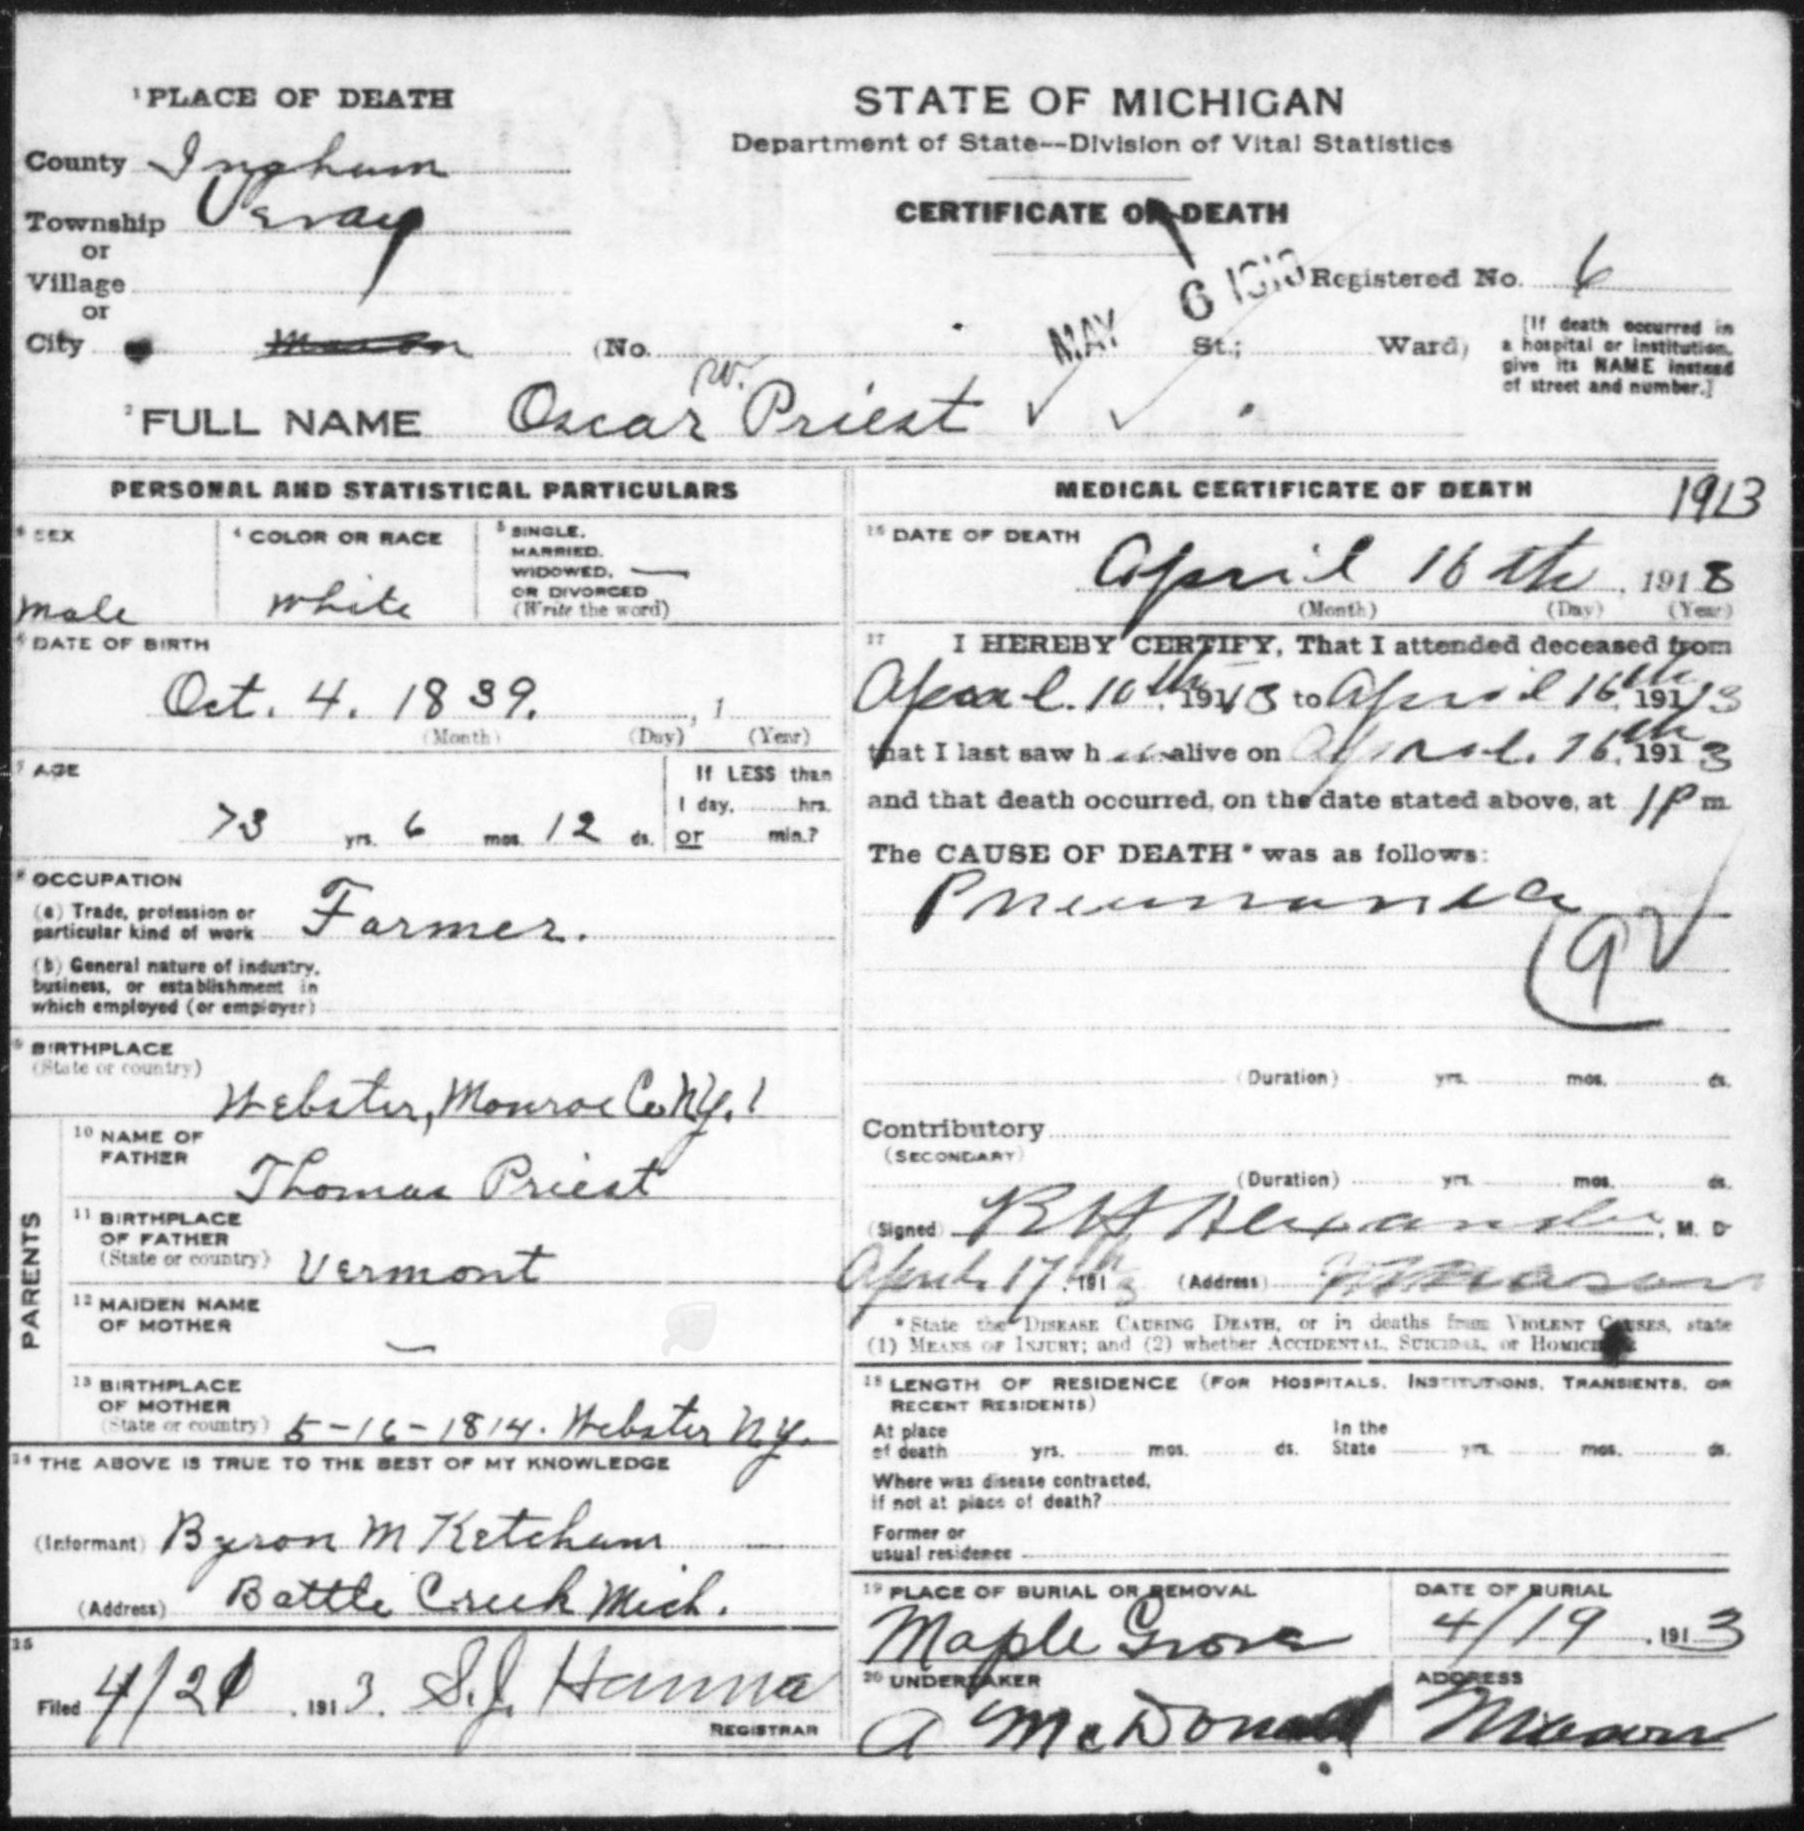 1 PLACE OF DEATH
County Ingham
Township Vevay
or
Village
or
City Mason (No. St.; Ward)
STATE OF MICHIGAN
Department of State--Division of Vital Statistics
CERTIFICATE OF DEATH
MAY 6 1913
Registered No. 6
[If death occurred in
a hospital or institution,
give its NAME instead
of street and number.]
2 FULL NAME Oscar W. Priest
PERSONAL AND STATISTICAL PARTICULARS
3 SEX
Male
4 COLOR OR RACE
White
5 SINGLE,
MARRIED,
WIDOWED, —
OR DIVORCED
(Write the word)
6 DATE OF BIRTH
Oct. 4. 1839. , 1
(Month) (Day) (Year)
7 AGE
73 yrs. 6 mos. 12 ds.
If LESS than
1 day, hrs.
or min.?
8 OCCUPATION
(a) Trade, profession or
particular kind of work Farmer.
(b) General nature of industry,
business, or establishment in
which employed (or employer)
9 BIRTHPLACE
(State or country)
Webster, Monroe Co. N.Y. 1
PARENTS
10 NAME OF
FATHER
Thomas Priest
11 BIRTHPLACE
OF FATHER
(State or country) Vermont
12 MAIDEN NAME
OF MOTHER
—
13 BIRTHPLACE
OF MOTHER
(State or country) 5-16-1814. Webster N.Y.
14 THE ABOVE IS TRUE TO THE BEST OF MY KNOWLEDGE
(Informant) Byron M Ketchum
(Address) Battle Creek Mich.
15
Filed 4/21, 1913. S.J. Hanna
REGISTRAR
MEDICAL CERTIFICATE OF DEATH 1913
16 DATE OF DEATH
April 16th, 1913
(Month) (Day) (Year)
17 I HEREBY CERTIFY, That I attended deceased from
April. 10th 1913 to April 16th 1913
that I last saw h im alive on April. 16th 1913
and that death occurred, on the date stated above, at 1 P m.
The CAUSE OF DEATH* was as follows:
Pneumonia
92
(Duration) yrs. mos. ds.
Contributory
(SECONDARY)
(Duration) yrs. mos. ds.
(Signed) Alexander, M. D.
April. 17th 1913 (Address) Mason
*State the DISEASE CAUSING DEATH, or in deaths from VIOLENT CAUSES, state
(1) MEANS OF INJURY; and (2) whether ACCIDENTAL, SUICIDAL, or HOMICIDAL
18 LENGTH OF RESIDENCE (FOR HOSPITALS, INSTITUTIONS, TRANSIENTS, OR
RECENT RESIDENTS)
At place
of death yrs. mos. ds.
In the
State yrs. mos. ds.
Where was disease contracted,
if not at place of death?
Former or
usual residence
19 PLACE OF BURIAL OR REMOVAL
Maple Grove
DATE OF BURIAL
4/19, 1913
20 UNDERTAKER
A McDonald
ADDRESS
Mason